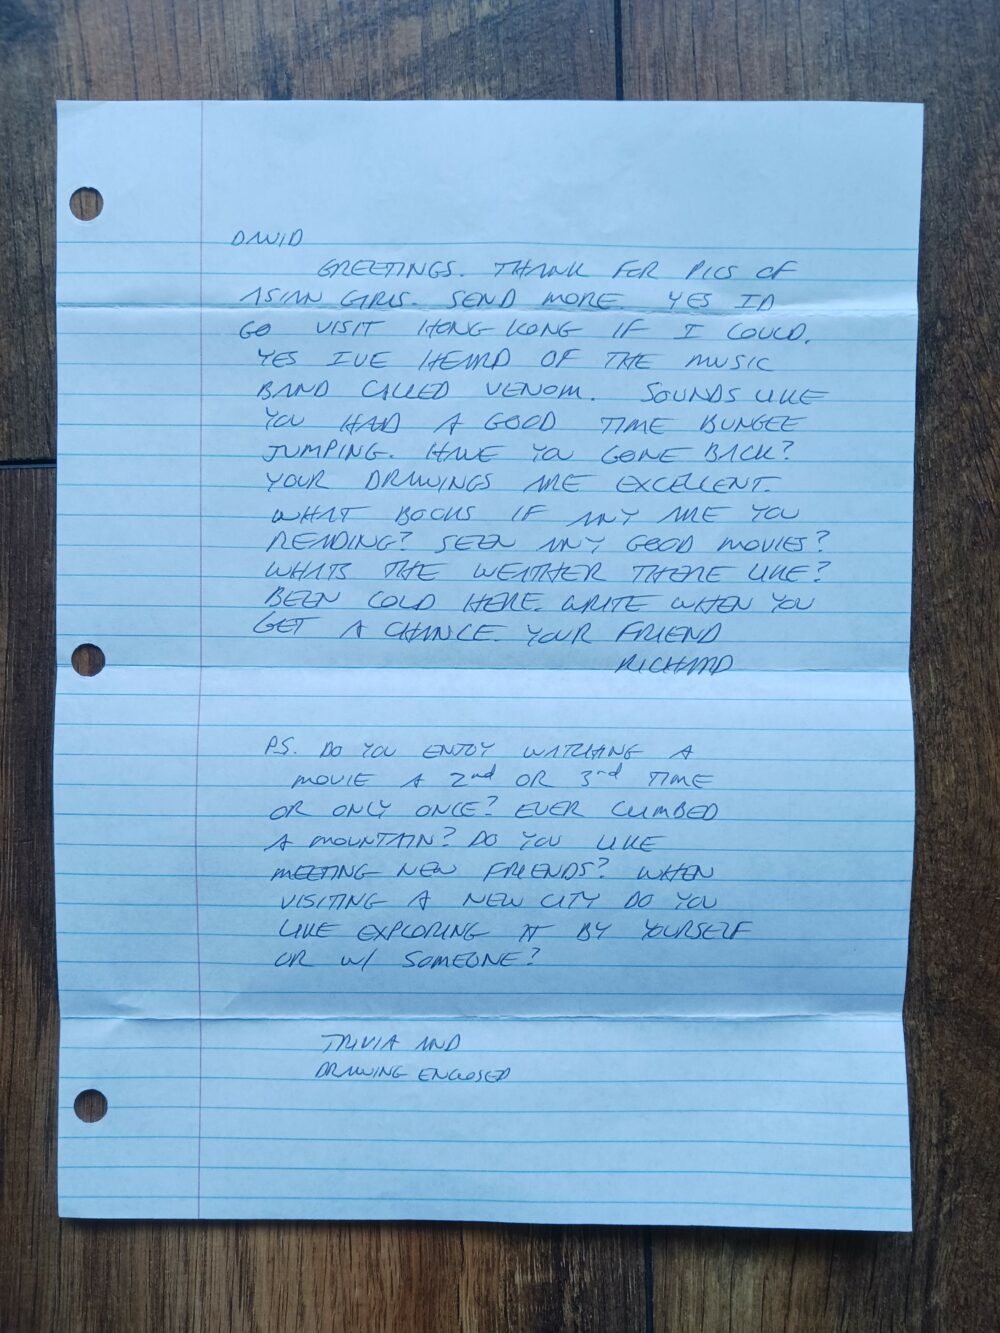 DAVID
GREETINGS. THANK FOR PICS OF
ASIAN GIRLS. SEND MORE. YES ID
GO VISIT HONG KONG IF I COULD.
YES IVE HEARD OF THE MUSIC
BAND CALLED VENOM. SOUNDS LIKE
YOU HAD A GOOD TIME BUNGEE
JUMPING. HAVE YOU GONE BACK?
YOUR DRAWINGS ARE EXCELLENT.
WHAT BOOKS IF ANY ARE YOU
READING? SEEN ANY GOOD MOVIES?
WHATS THE WEATHER THERE LIKE?
BEEN COLD HERE. WRITE WHEN YOU
GET A CHANCE. YOUR FRIEND
RICHARD
PS. DO YOU ENJOY WATCHING A
MOVIE A 2nd OR 3rd TIME
OR ONLY ONCE? EVER CLIMBED
A MOUNTAIN? DO YOU LIKE
MEETING NEW FRIENDS? WHEN
VISITING A NEW CITY DO YOU
LIKE EXPLORING IT BY YOURSELF
OR W/ SOMEONE?
TRIVIA AND
DRAWING ENCLOSED